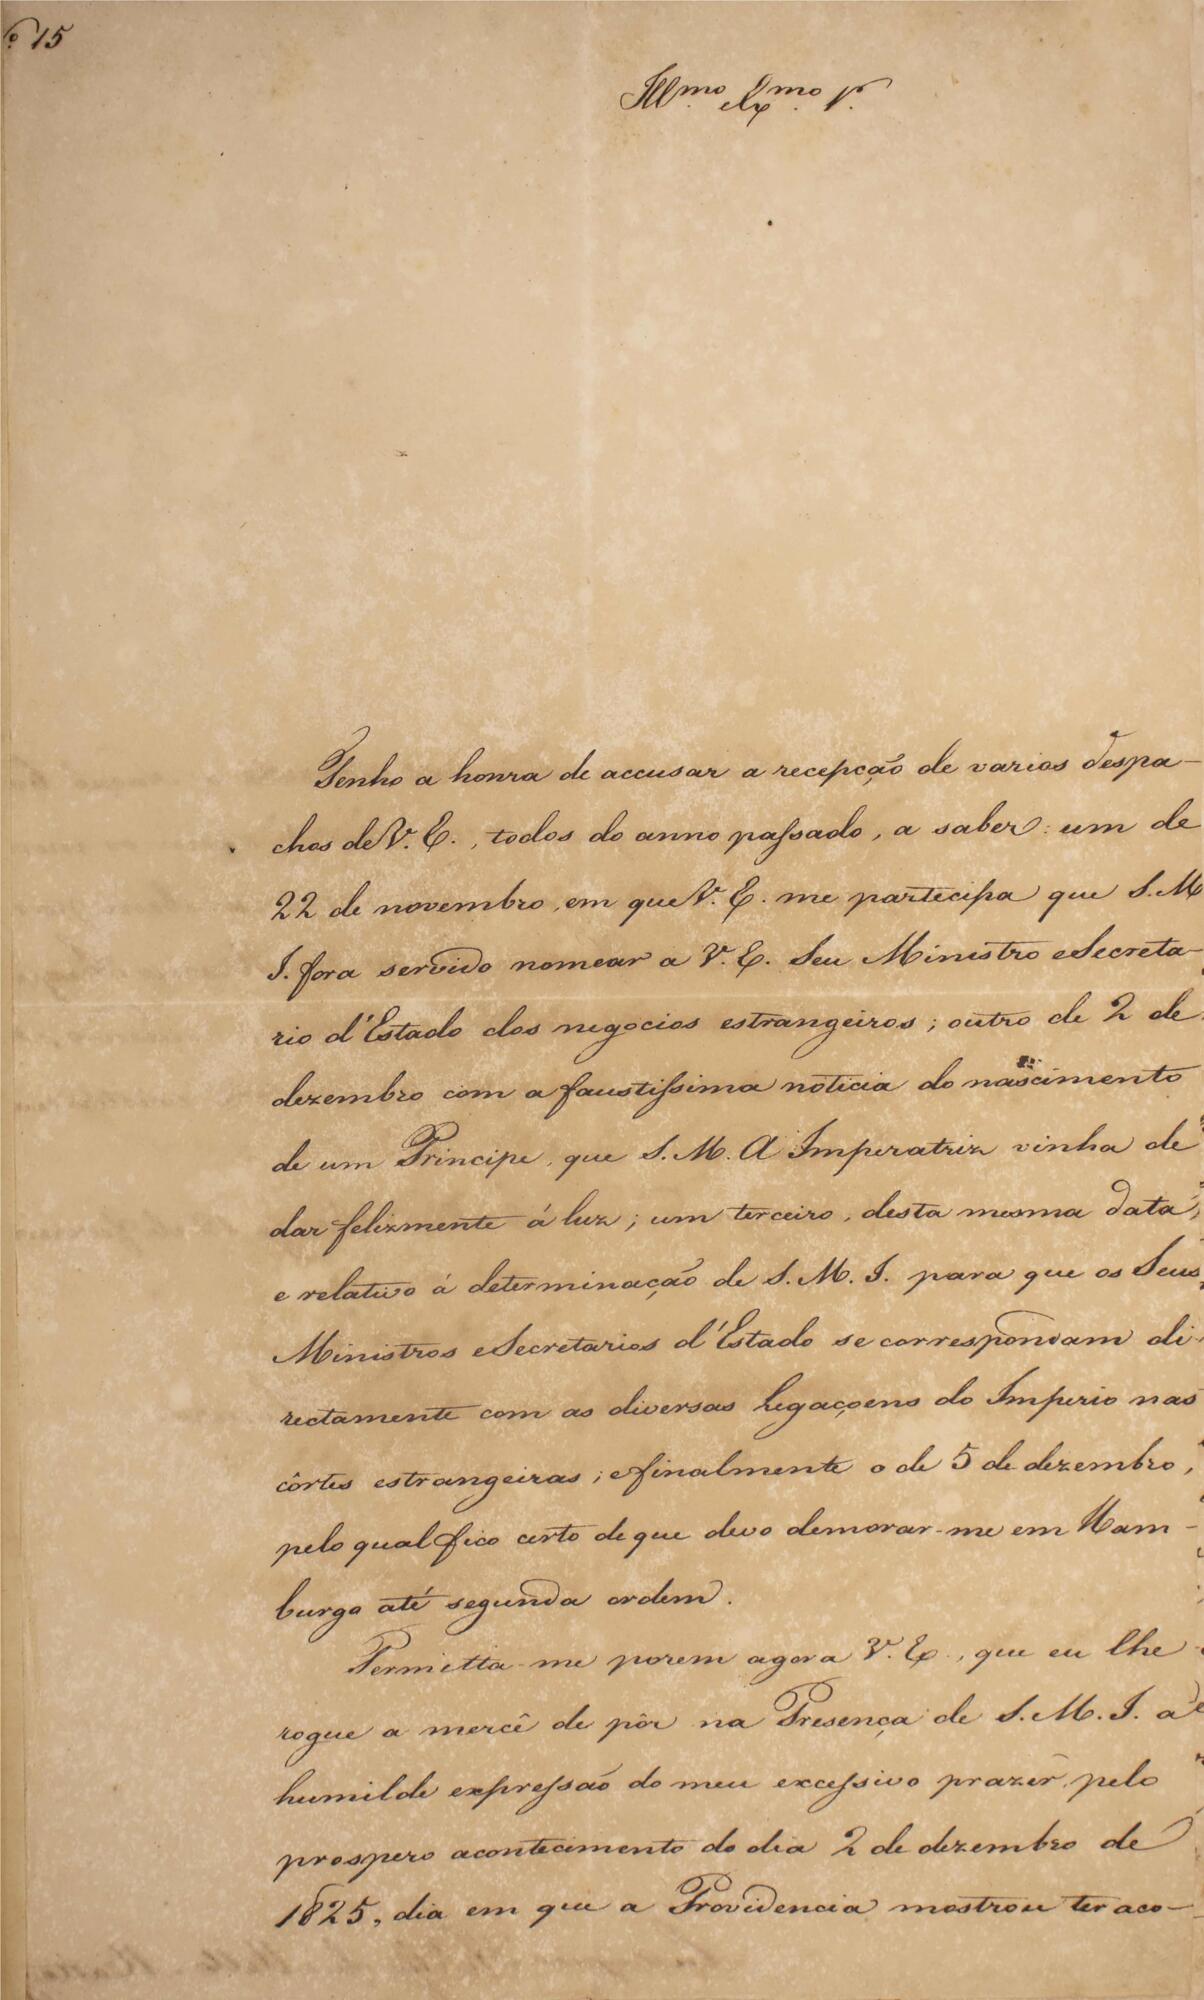 º 15
Illmo. Exmo. Sr.
Tenho a honra de accusar a recepção de varios despa-
chos de V. E., todos do anno passado, a saber: um de
22 de novembro, em que V. E. me participa que S. M.
I. fora servido nomear a V. E. Seu Ministro e Secreta-
rio d'Estado dos negocios estrangeiros; outro de 2 de
dezembro com a faustissima noticia do nascimento
de um Principe, que S. M. A Imperatriz vinha de
dar felizmente á luz; um terceiro, desta mesma data,
e relativo á determinação de S. M. I. para que os Seus
Ministros e Secretarios d'Estado se correspondam di-
rectamente com as diversas Legaçoens do Imperio nas
côrtes estrangeiras; e finalmente o de 5 de dezembro,
pelo qual fico certo de que devo demorar-me em Ham-
burgo até segunda ordem.
Permitta-me porem agora V. Ex., que eu lhe
rogue a mercê de pôr na Presença de S. M. I. a
humilde expressão do meu excessivo prazer, pelo
prospero acontecimento do dia 2 de dezembro de
1825, dia em que a Providencia mostrou ter aco-